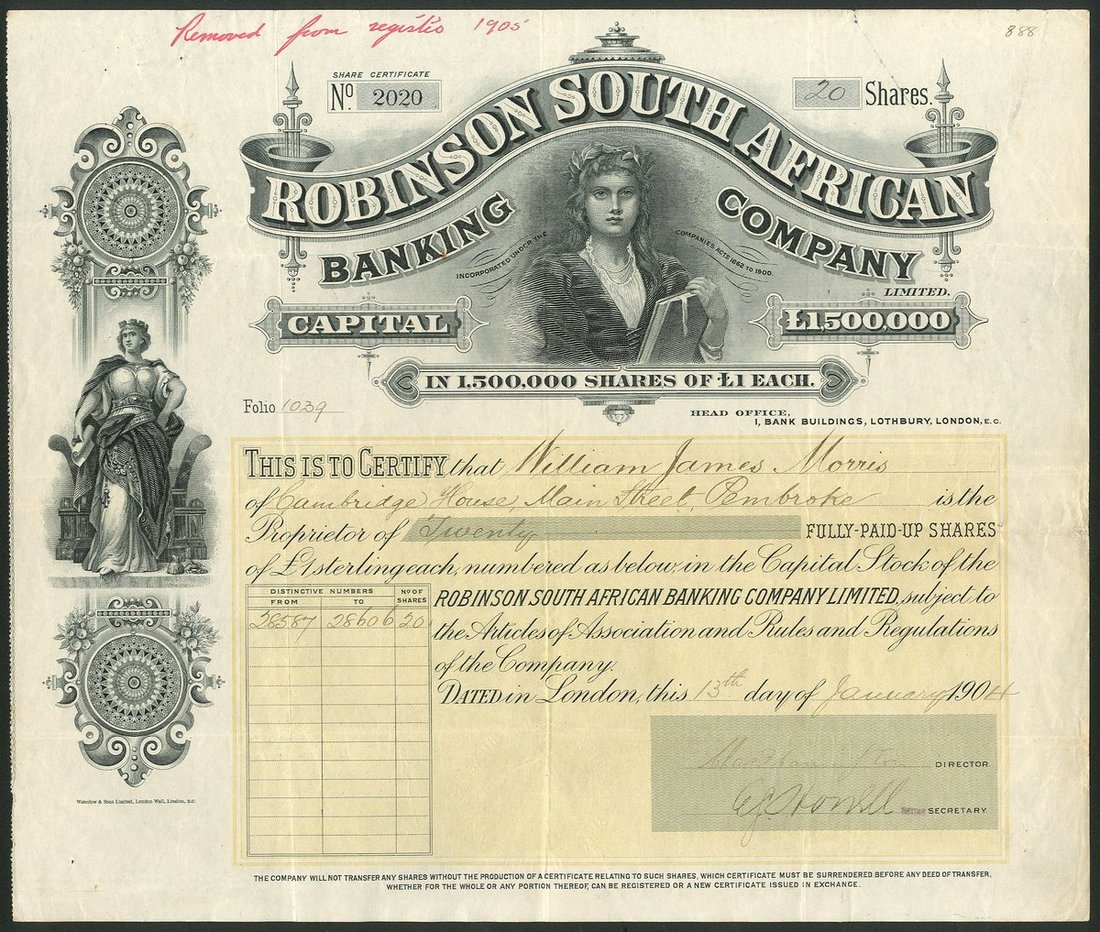 Removed from registis 1905
888
SHARE CERTIFICATE
No 2020
20 Shares.
ROBINSON SOUTH AFRICAN
BANKING COMPANY
LIMITED.
INCORPORATED UNDER THE COMPANIES ACTS 1862 TO 1900.
CAPITAL £1500,000
IN 1,500,000 SHARES OF £1 EACH.
Folio 1039
HEAD OFFICE,
1, BANK BUILDINGS, LOTHBURY, LONDON, E.C.
THIS IS TO CERTIFY that William James Morris
of Cambridge House, Main Street, Pembroke is the
Proprietor of Twenty FULLY-PAID-UP SHARES
of £1 sterling each, numbered as below, in the Capital Stock of the
ROBINSON SOUTH AFRICAN BANKING COMPANY LIMITED, subject to
the Articles of Association and Rules and Regulations
of the Company.
DISTINCTIVE NUMBERS
FROM TO
No OF SHARES
28587 28606 20
DATED in London, this 13th day of January 1904
DIRECTOR.
SECRETARY.
Waterlow & Sons Limited, London Wall, London, E.C.
THE COMPANY WILL NOT TRANSFER ANY SHARES WITHOUT THE PRODUCTION OF A CERTIFICATE RELATING TO SUCH SHARES, WHICH CERTIFICATE MUST BE SURRENDERED BEFORE ANY DEED OF TRANSFER,
WHETHER FOR THE WHOLE OR ANY PORTION THEREOF, CAN BE REGISTERED OR A NEW CERTIFICATE ISSUED IN EXCHANGE.